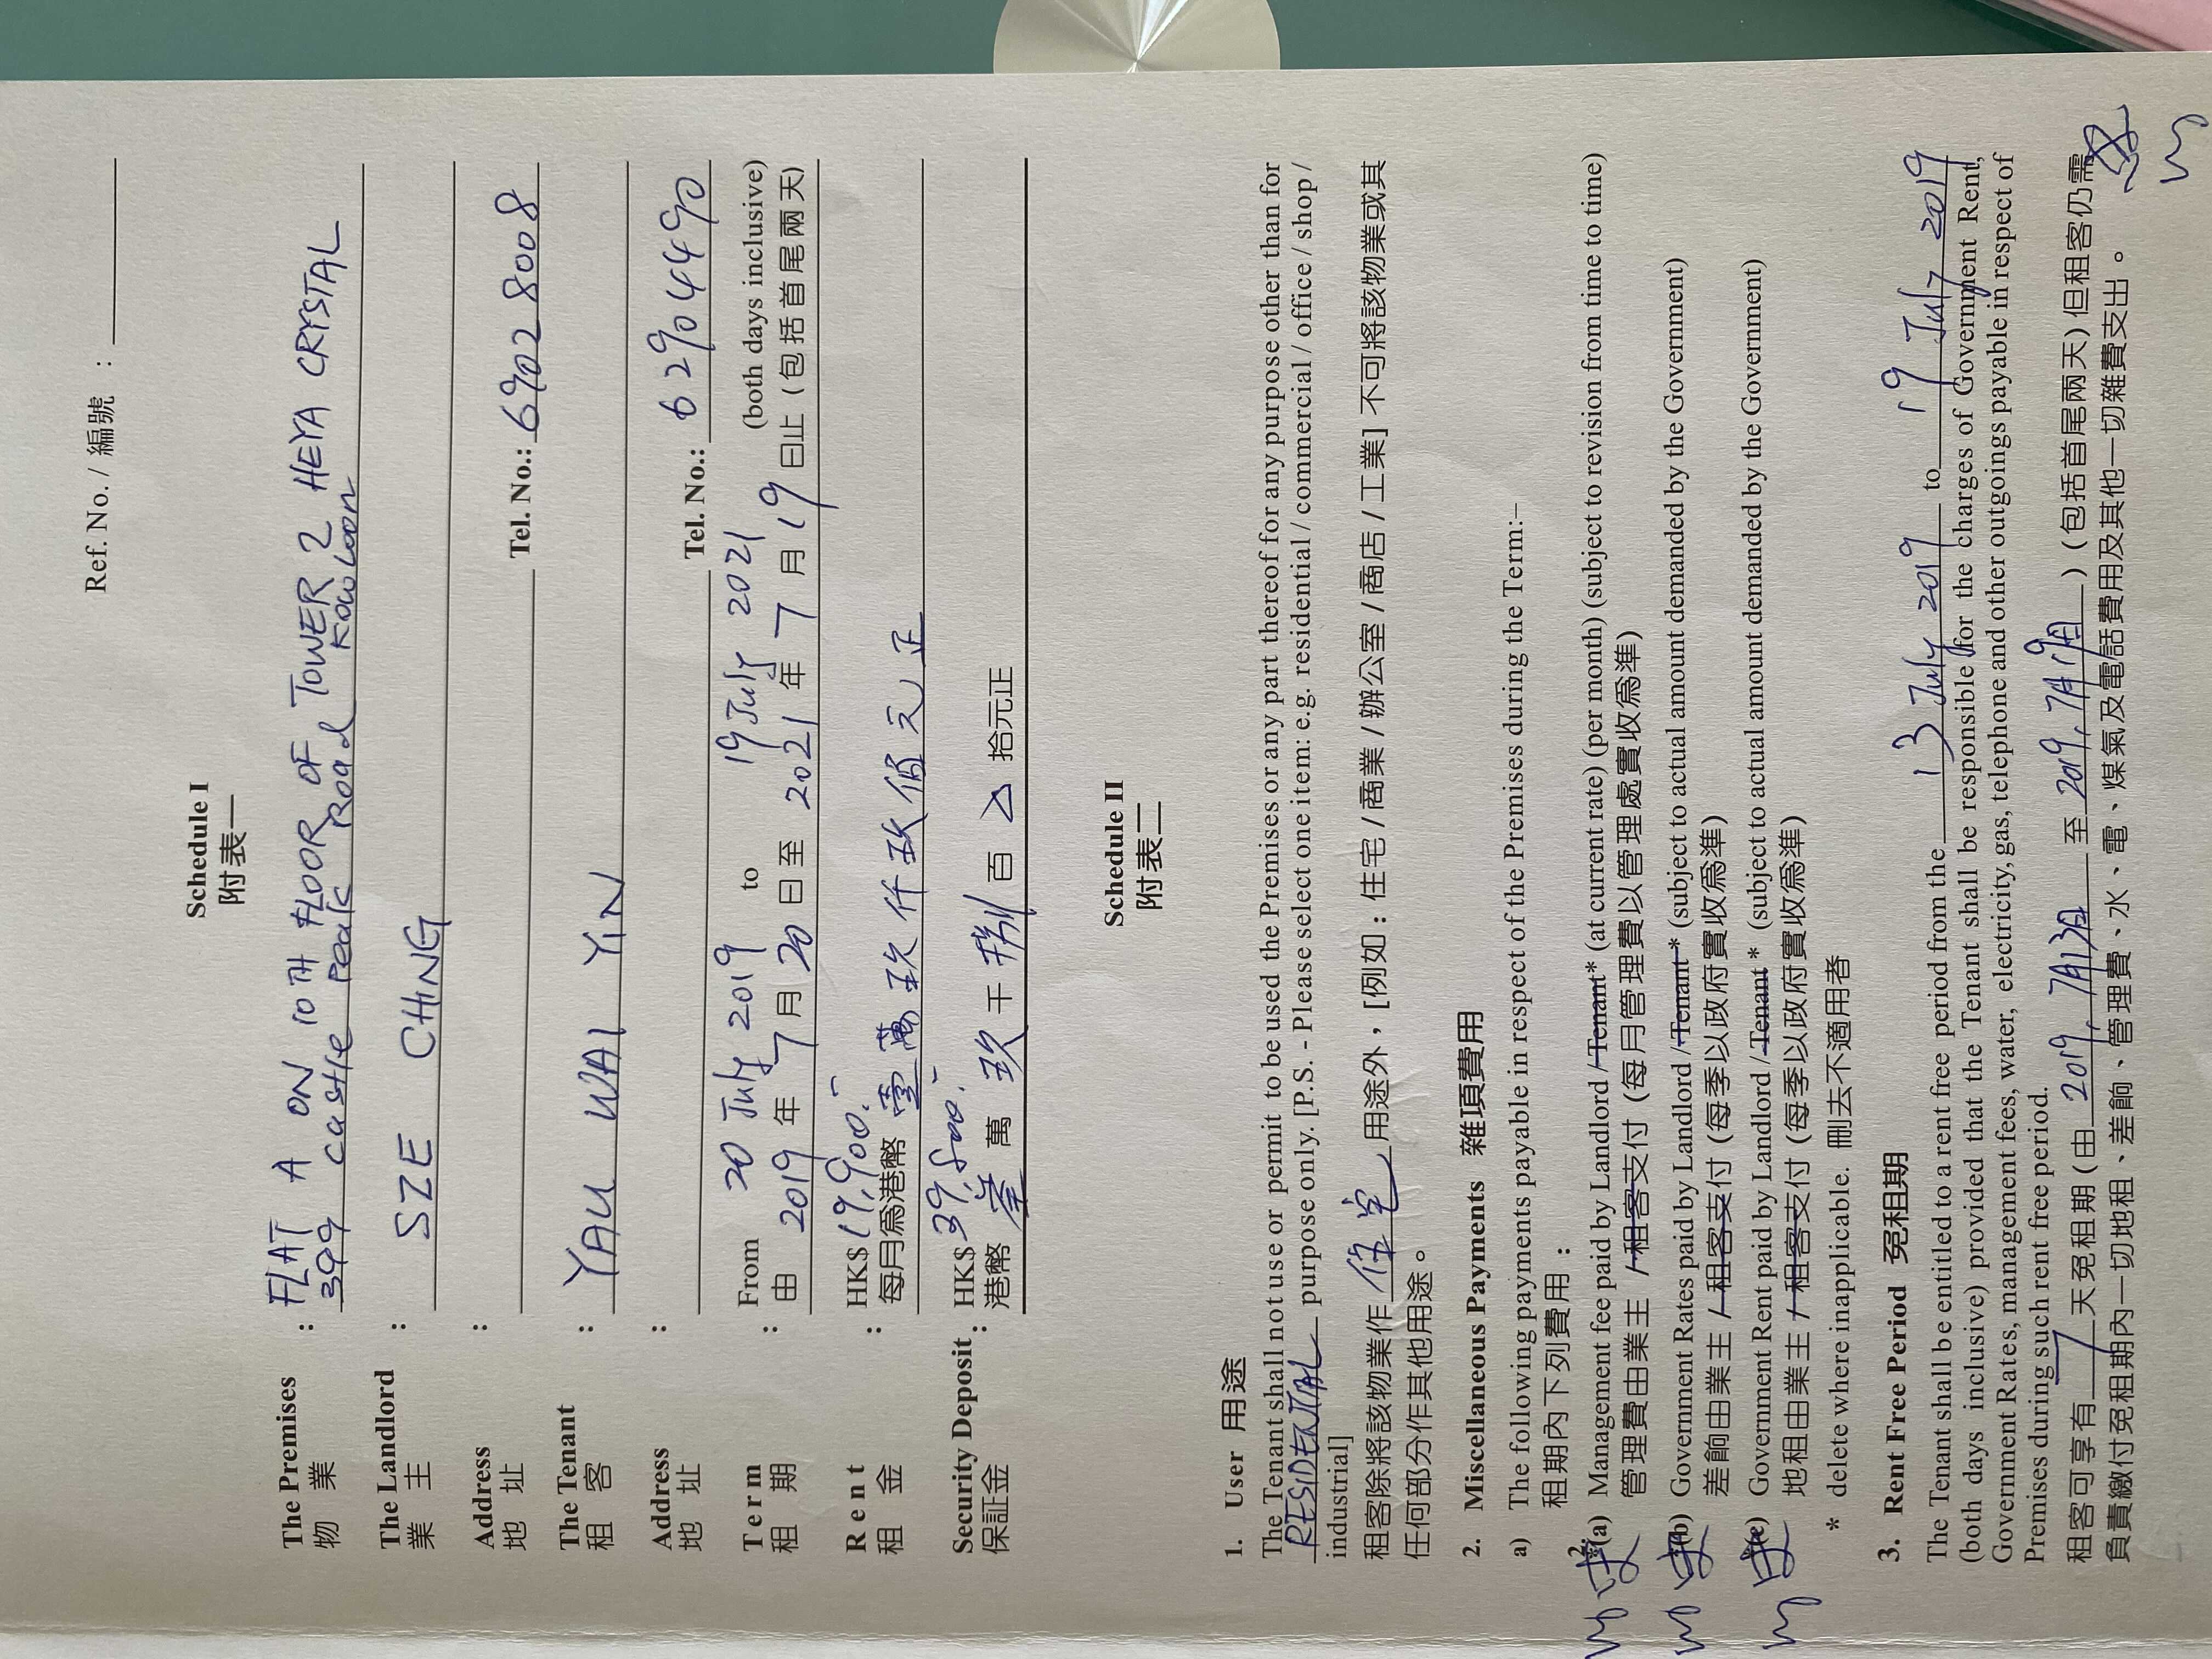 Ref. No. / 編號 :
Schedule I
附表一
The Premises : FLAT A ON 10TH FLOOR OF TOWER 2 HEYA CRYSTAL
物業 399 Castle Peak Road Kowloon
The Landlord : SZE CHING
業主
Address : Tel. No.: 6902 8008
地址
The Tenant : YAU WAI YIN
租客
Address : Tel. No.: 6290 4490
地址
Term : From 20 July 2019 to 19 July 2021 (both days inclusive)
租期 由 2019 年 7 月 20 日至 2021 年 7 月 19 日止 (包括首尾兩天)
Rent : HK$ 19,900.-
租金 每月爲港幣 壹萬玖仟玖佰元正
Security Deposit : HK$ 39,800.-
保証金 港幣 叁 萬 玖 千 捌 百 拾元正
Schedule II
附表二
1. User 用途
The Tenant shall not use or permit to be used the Premises or any part thereof for any purpose other than for
RESIDENTIAL purpose only. [P.S. - Please select one item: e.g. residential / commercial / office / shop /
industrial]
租客除將該物業作 住宅 用途外，[例如：住宅 / 商業 / 辦公室 / 商店 / 工業] 不可將該物業或其
任何部分作其他用途。
2. Miscellaneous Payments 雜項費用
a) The following payments payable in respect of the Premises during the Term:–
租期內下列費用：
(a) Management fee paid by Landlord / Tenant* (at current rate) (per month) (subject to revision from time to time)
管理費由業主 / 租客支付 (每月管理費以管理處實收爲準)
(b) Government Rates paid by Landlord / Tenant* (subject to actual amount demanded by the Government)
差餉由業主 / 租客支付 (每季以政府實收爲準)
(c) Government Rent paid by Landlord / Tenant * (subject to actual amount demanded by the Government)
地租由業主 / 租客支付 (每季以政府實收爲準)
* delete where inapplicable. 刪去不適用者
3. Rent Free Period 免租期
The Tenant shall be entitled to a rent free period from the 13 July 2019 to 19 July 2019
(both days inclusive) provided that the Tenant shall be responsible for the charges of Government Rent,
Government Rates, management fees, water, electricity, gas, telephone and other outgoings payable in respect of
Premises during such rent free period.
租客可享有 7 天免租期 (由 2019, 7月13日 至 2019, 7月19日 ) (包括首尾兩天) 但租客仍需
負責繳付免租期內一切地租、差餉、管理費、水、電、煤氣及電話費用及其他一切雜費支出。